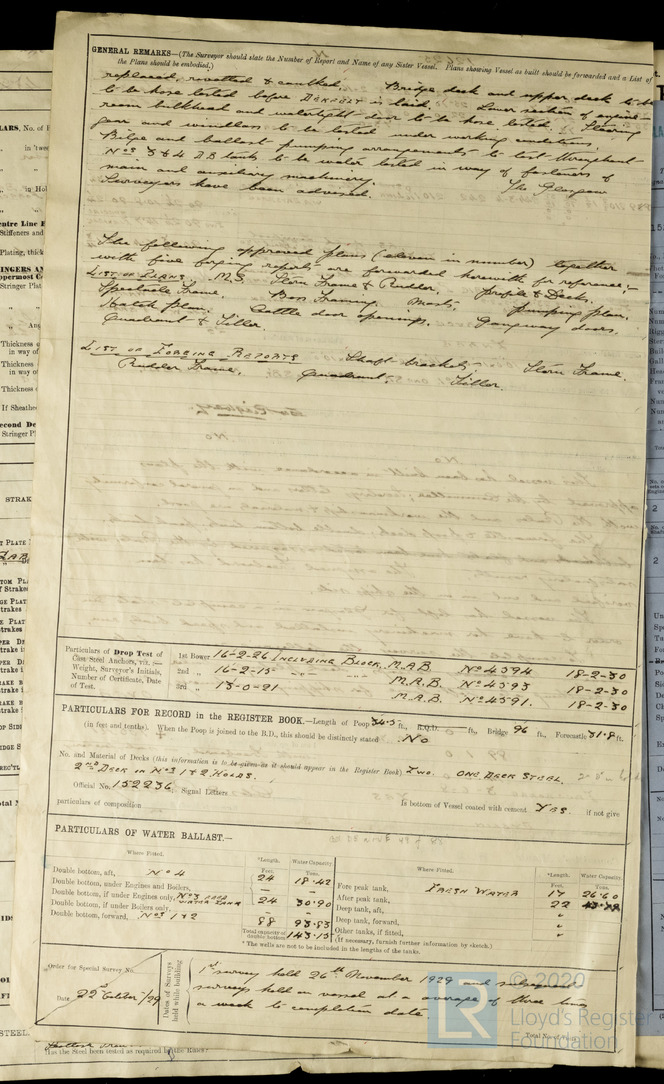 GENERAL REMARKS—(The Surveyor should state the Number of Report and Name of any Sister Vessel. Plans showing Vessel as built should be forwarded and a List of
the Plans should be embodied.)
replaced, rivetted & caulked. Bridge deck and upper deck to be
to be hose tested before DEXPOLT is laid. Lower section of engine-
room bulkhead and watertight door to be hose tested. Steering
gear and windlass to be tested under working conditions.
Bilge and ballast pumping arrangements to test throughout—
Nos 3 & 4 D.B tanks to be water tested in way of fasteners of
main and auxiliary machinery. The Glasgow
Surveyors have been advised.
The following approved plans (eleven in number) together
with five forging reports are forwarded herewith for reference;—
LIST OF PLANS. M.S. Stern Frame & Rudder. Profile & Decks.
Spectacle Frame. Boss Framing. Masts. Pumping plan.
Hatch plan. Cattle door openings. Gangway doors.
Quadrant & Tiller.
LIST OF FORGING REPORTS Shaft brackets; Stern Frame.
Rudder Frame. Quadrant. Tiller.
Particulars of Drop Test of
Cast Steel Anchors, viz. :—
Weight, Surveyor's Initials,
Number of Certificate, Date
of Test.
1st Bower 16-2-26 INCLUDING BLOCK. M.A.B. No 4594 18-2-30
2nd „ 16-2-15 „ „ M.A.B. No 4593 18-2-30
3rd „ 13-0-21 M.A.B. No 4591. 18-2-30
PARTICULARS FOR RECORD in the REGISTER BOOK.—Length of Poop 34.5 ft., R.Q.D. — ft., Bridge 96 ft., Forecastle 31.8 ft.
(in feet and tenths). When the Poop is joined to the B.D., this should be distinctly stated No
No. and Material of Decks (this information is to be given as it should appear in the Register Book) Two. ONE DECK STEEL.
2ND DECK IN Nos 1 & 2 HOLDS.
Official No. 152236 Signal Letters
Is bottom of Vessel coated with cement YES. if not give
particulars of composition
PARTICULARS OF WATER BALLAST.—
Where Fitted. *Length. Water Capacity.
Feet. Tons.
Double bottom, aft, No 4 24 18.42
Double bottom, under Engines and Boilers, — —
Double bottom, if under Engines only, No 3 FEED WATER TANK 24 30.90
Double bottom, if under Boilers only, — —
Double bottom, forward, Nos 1 & 2 88 93.83
Total capacity of double bottom 143.15
Where Fitted. *Length. Water Capacity.
Feet. Tons.
Fore peak tank, FRESH WATER 17 26.60
After peak tank, 22
Deep tank, aft,
Deep tank, forward,
Other tanks, if fitted,
(If necessary, furnish further information by sketch.)
* The wells are not to be included in the lengths of the tanks.
Order for Special Survey No.
Date 22nd October /29
Dates of Surveys held while building
1st survey held 26th November 1929 and subsequent
surveys held on vessel at a average of three times
a week to completion date.
Total No. of visits
© 2020
LR
Lloyd's Register
Foundation